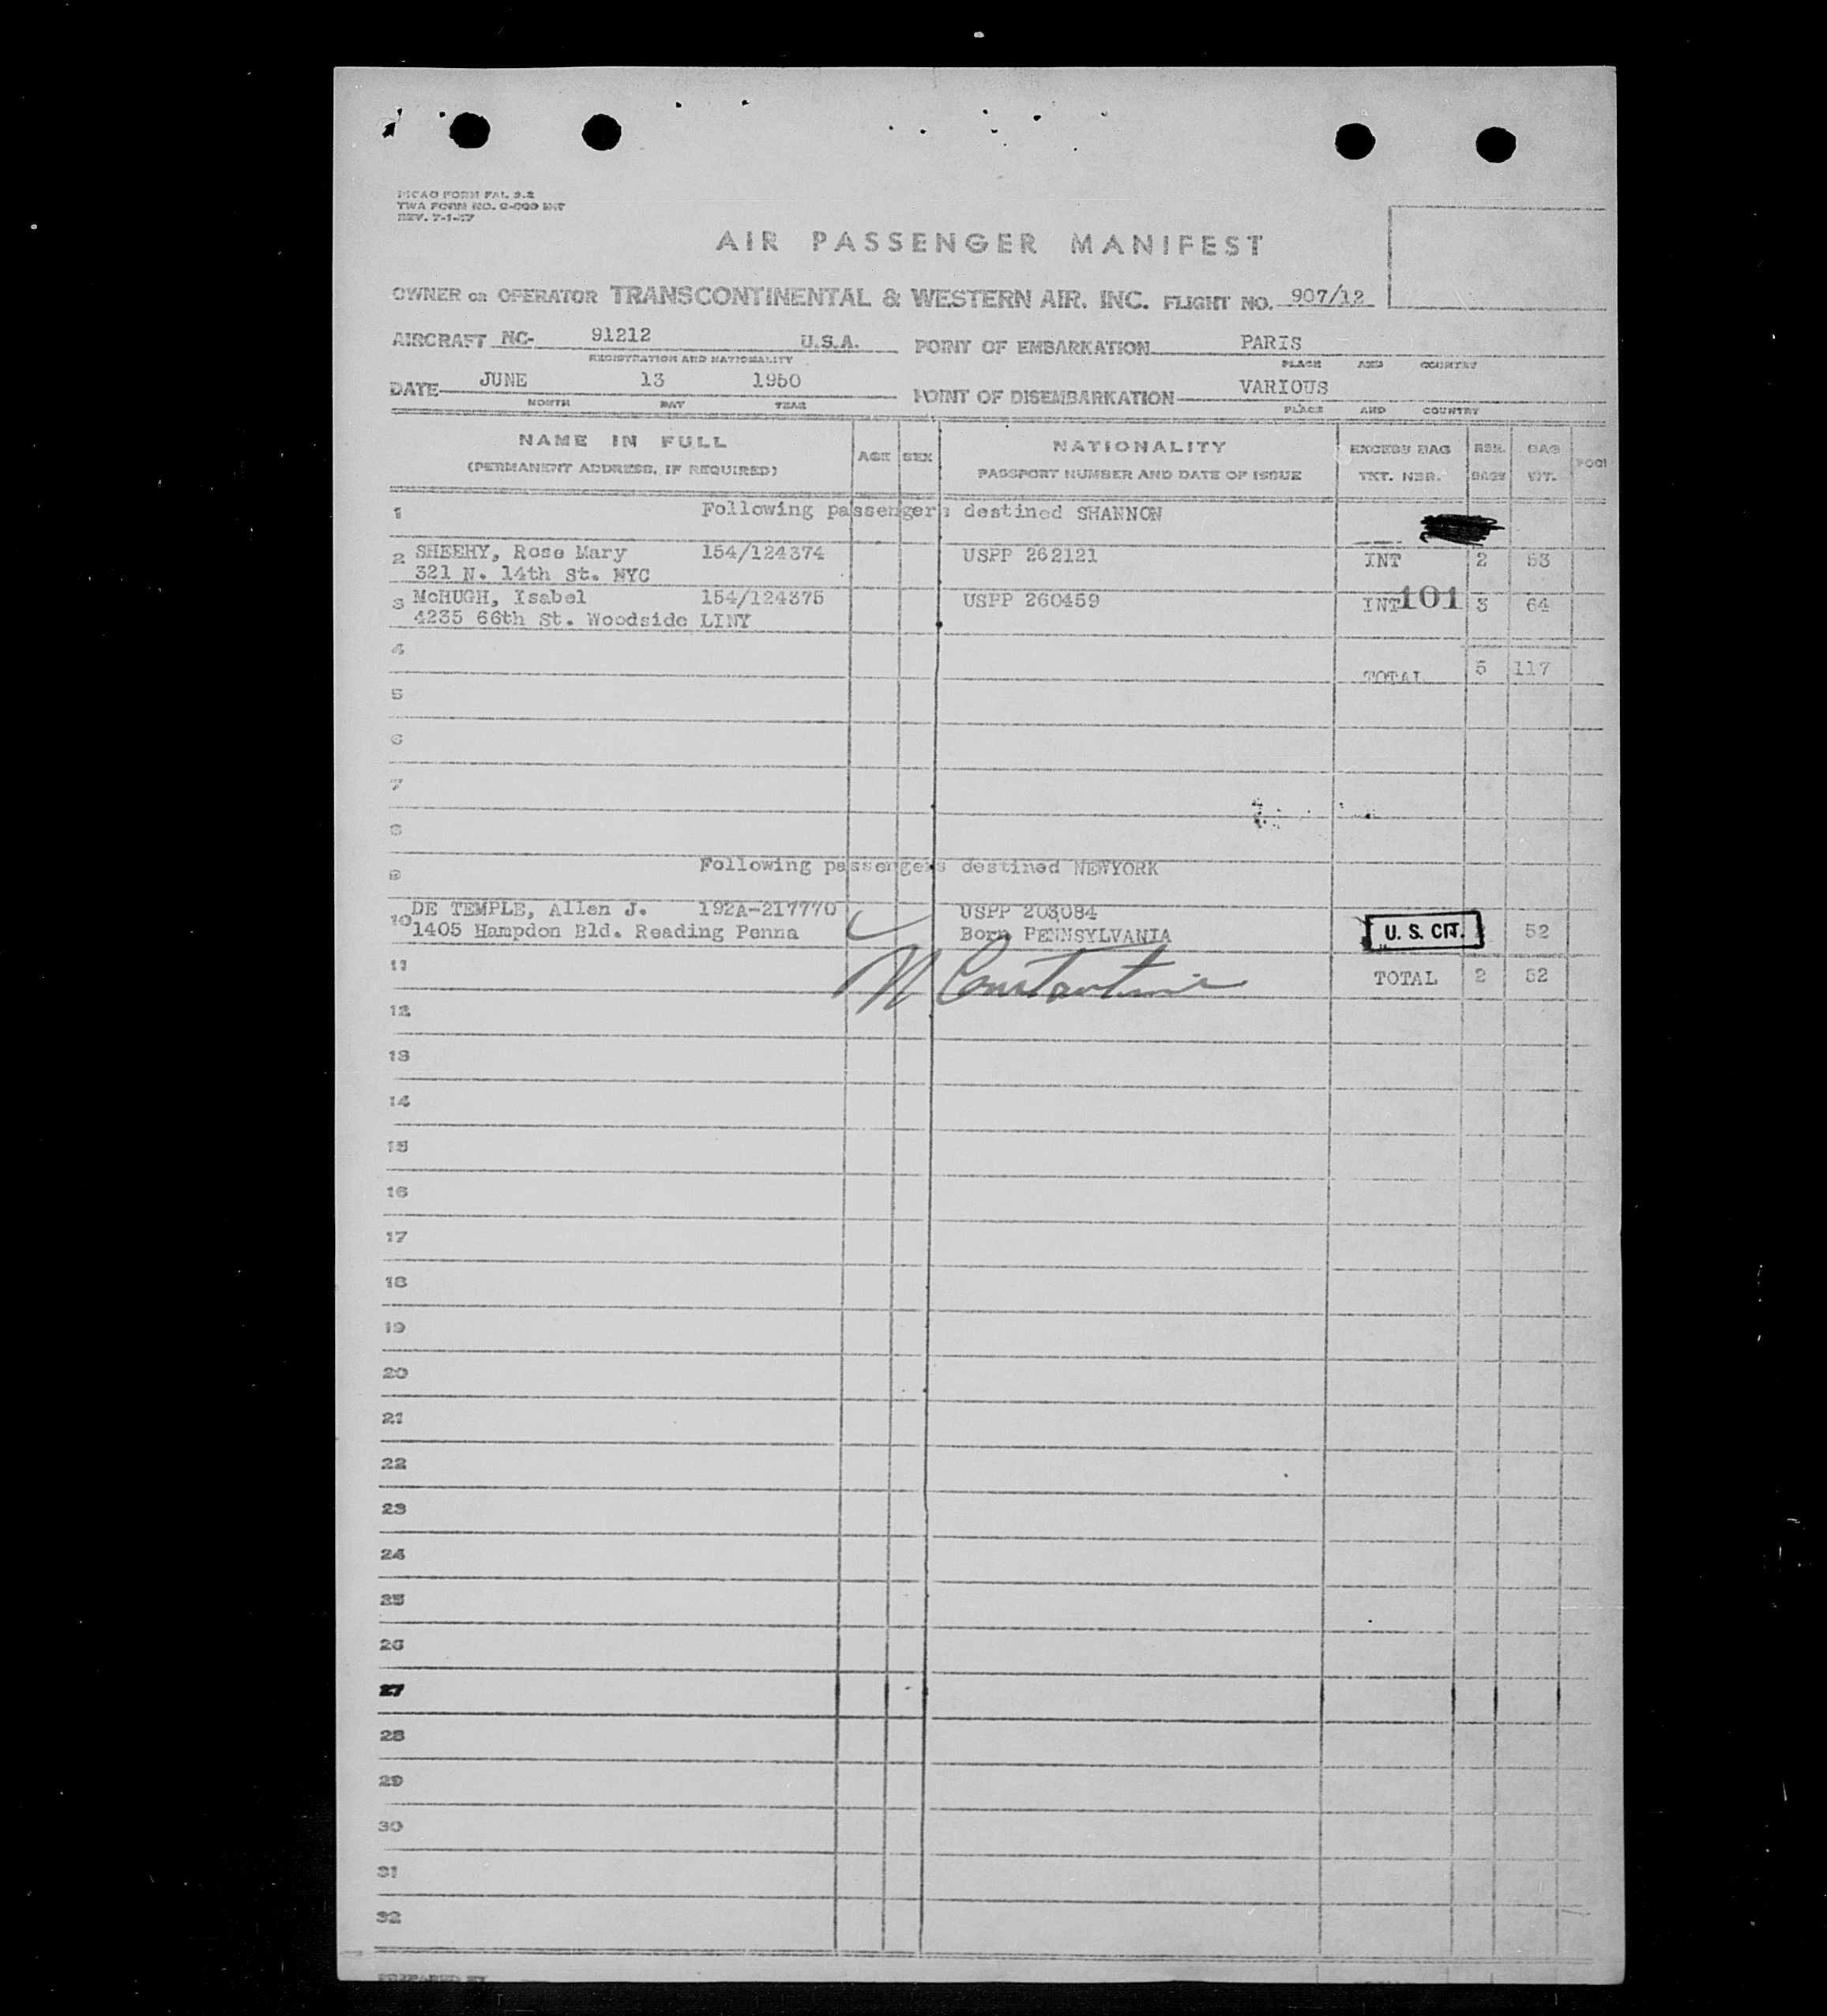 PICAO FORM FAL 9.2
TWA FORM NO. INT
REV. 7-1-47
AIR PASSENGER MANIFEST
OWNER OR OPERATOR TRANSCONTINENTAL & WESTERN AIR. INC. FLIGHT NO. 907/12
AIRCRAFT NC- 91212 U.S.A. POINT OF EMBARKATION PARIS
REGISTRATION AND NATIONALITY PLACE AND COUNTRY
DATE JUNE 13 1950 POINT OF DISEMBARKATION VARIOUS
MONTH DAY YEAR PLACE AND COUNTRY
NAME IN FULL AGE SEX NATIONALITY EXCESS BAG NBR. BAG
(PERMANENT ADDRESS, IF REQUIRED) PASSPORT NUMBER AND DATE OF ISSUE TKT. NBR. BAGS WT.
1 Following passengers destined SHANNON
2 SHEEHY, Rose Mary 154/124374 USPP 262121 INT 2 53
321 N. 14th St. NYC
3 McHUGH, Isabel 154/124375 USPP 260459 INT 101 3 64
4235 66th St. Woodside LINY
4 TOTAL 5 117
5
6
7
8
9 Following passengers destined NEWYORK
10 DE TEMPLE, Allen J. 192A-217770 USPP 203084
1405 Hampdon Bld. Reading Penna Born PENNSYLVANIA U. S. CIT. 52
11 N Constantine TOTAL 2 52
12
13
14
15
16
17
18
19
20
21
22
23
24
25
26
27
28
29
30
31
32
PREPARED BY